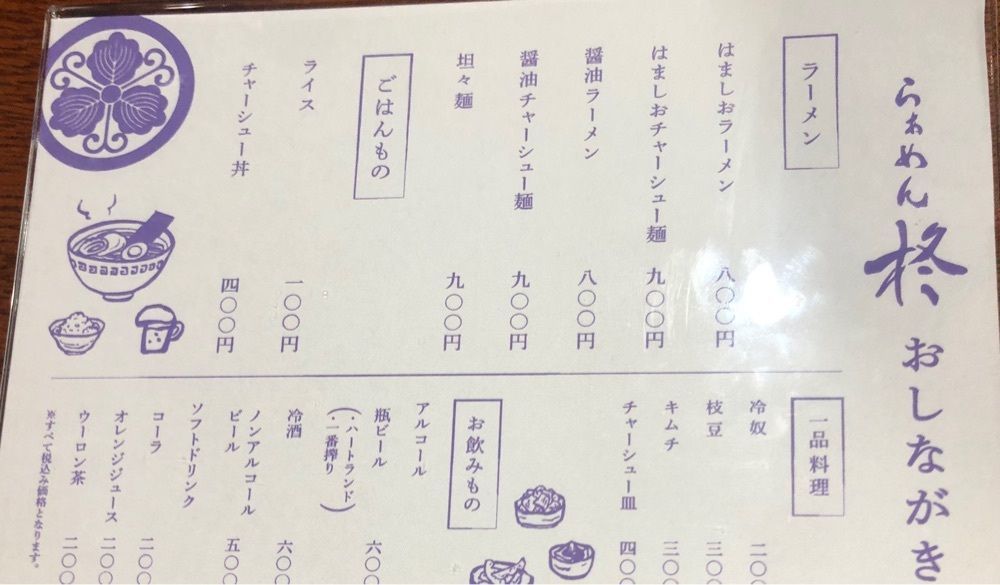 らぁめん 柊 おしながき
ラーメン
はましおラーメン 八〇〇円
はましおチャーシュー麺 九〇〇円
醤油ラーメン 八〇〇円
醤油チャーシュー麺 九〇〇円
坦々麺 九〇〇円
ごはんもの
ライス 一〇〇円
チャーシュー丼 四〇〇円
一品料理
冷奴 二〇〇
枝豆 二〇〇
キムチ 三〇〇
チャーシュー皿 四〇〇
お飲みもの
アルコール
瓶ビール 六〇〇
(・ハートランド
・一番搾り)
冷酒 六〇〇
ノンアルコール
ビール 五〇〇
ソフトドリンク
コーラ 二〇〇
オレンジジュース 二〇〇
ウーロン茶 二〇〇
※すべて税込み価格となります。